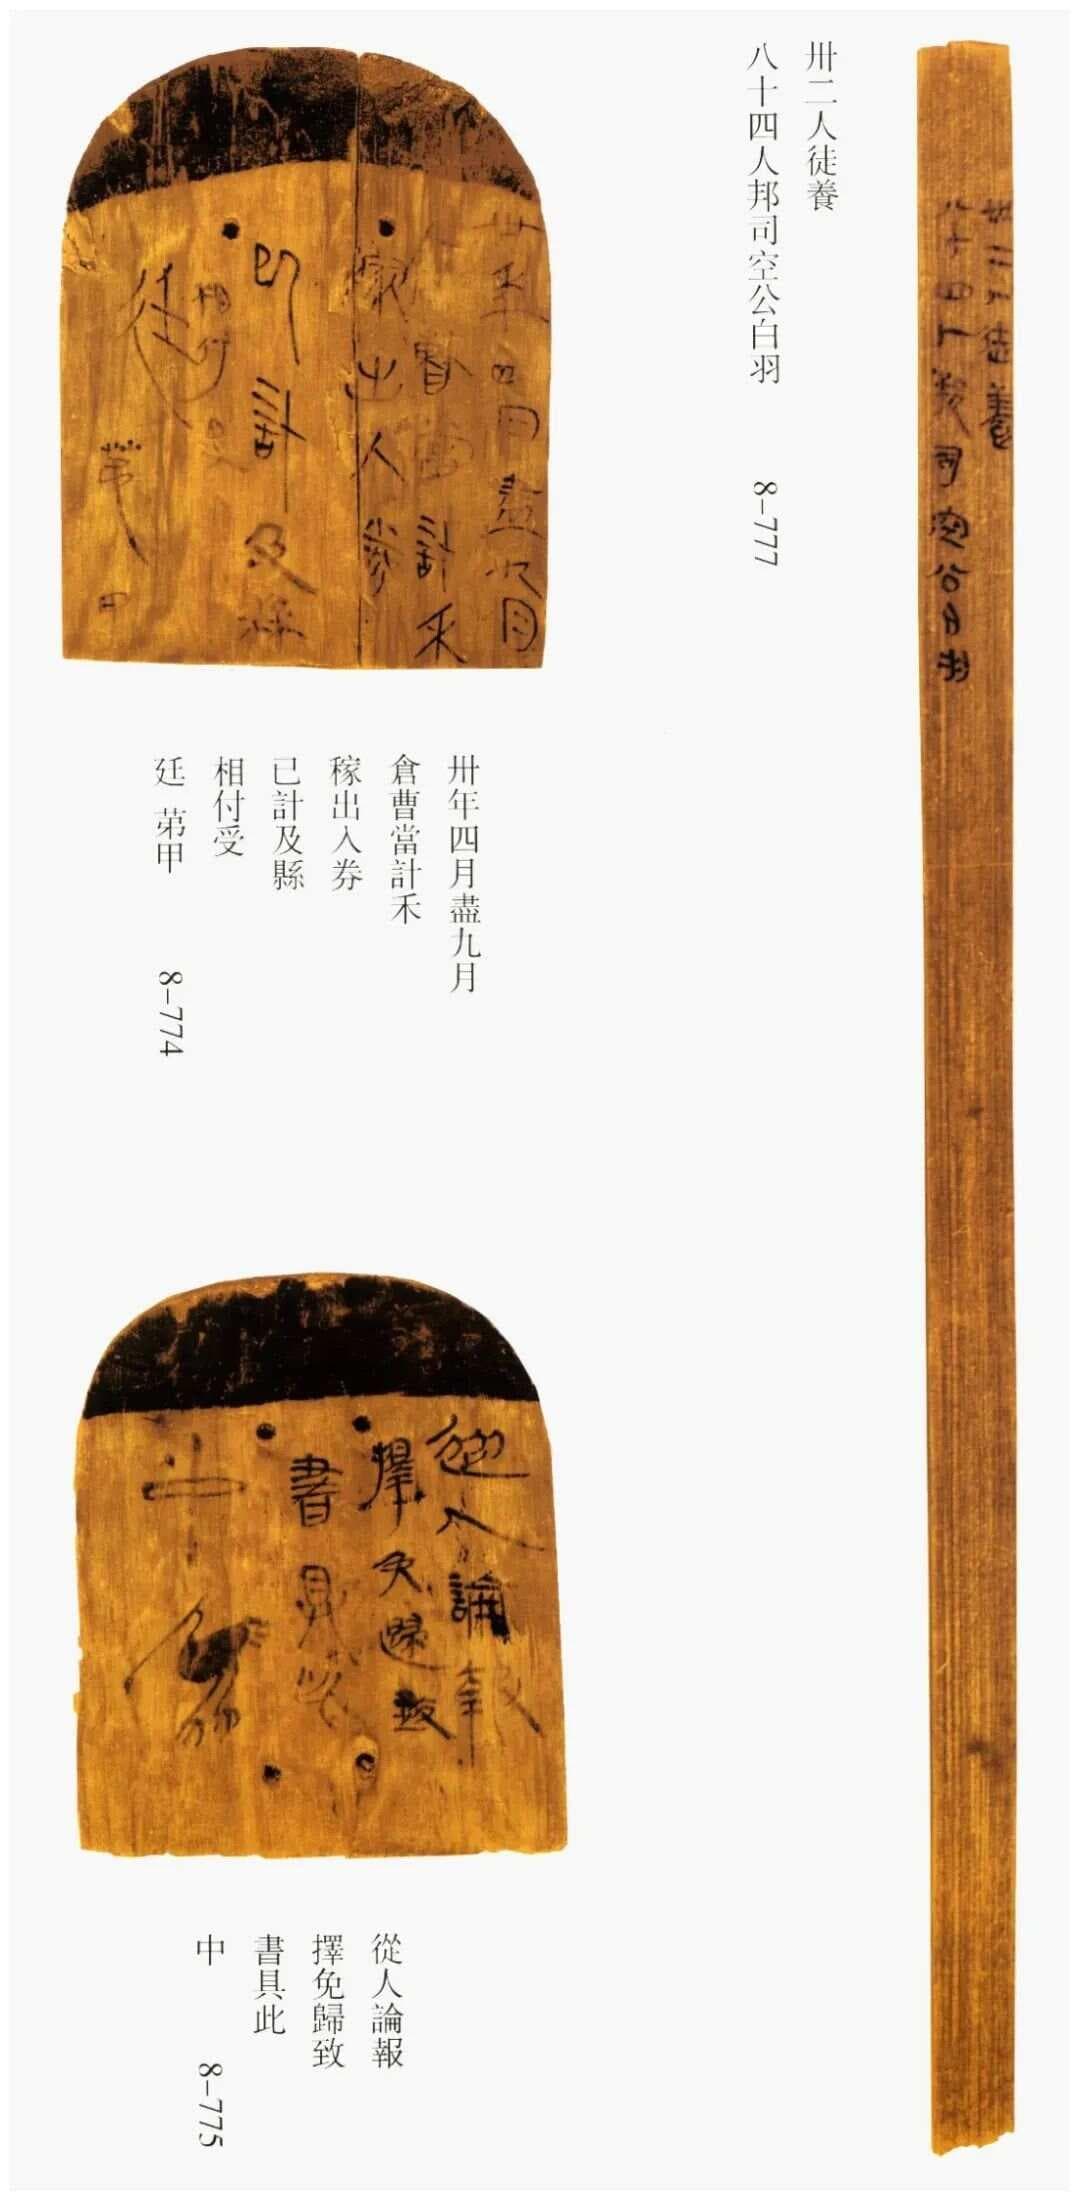 卅二人徒養
八十四人邦司空公白羽
8-777
卅年四月盡九月
倉曹當計禾
稼出入券
已計及縣
相付受
廷 苐甲
8-774
從人論報
擇免歸致
書具此
中
8-775